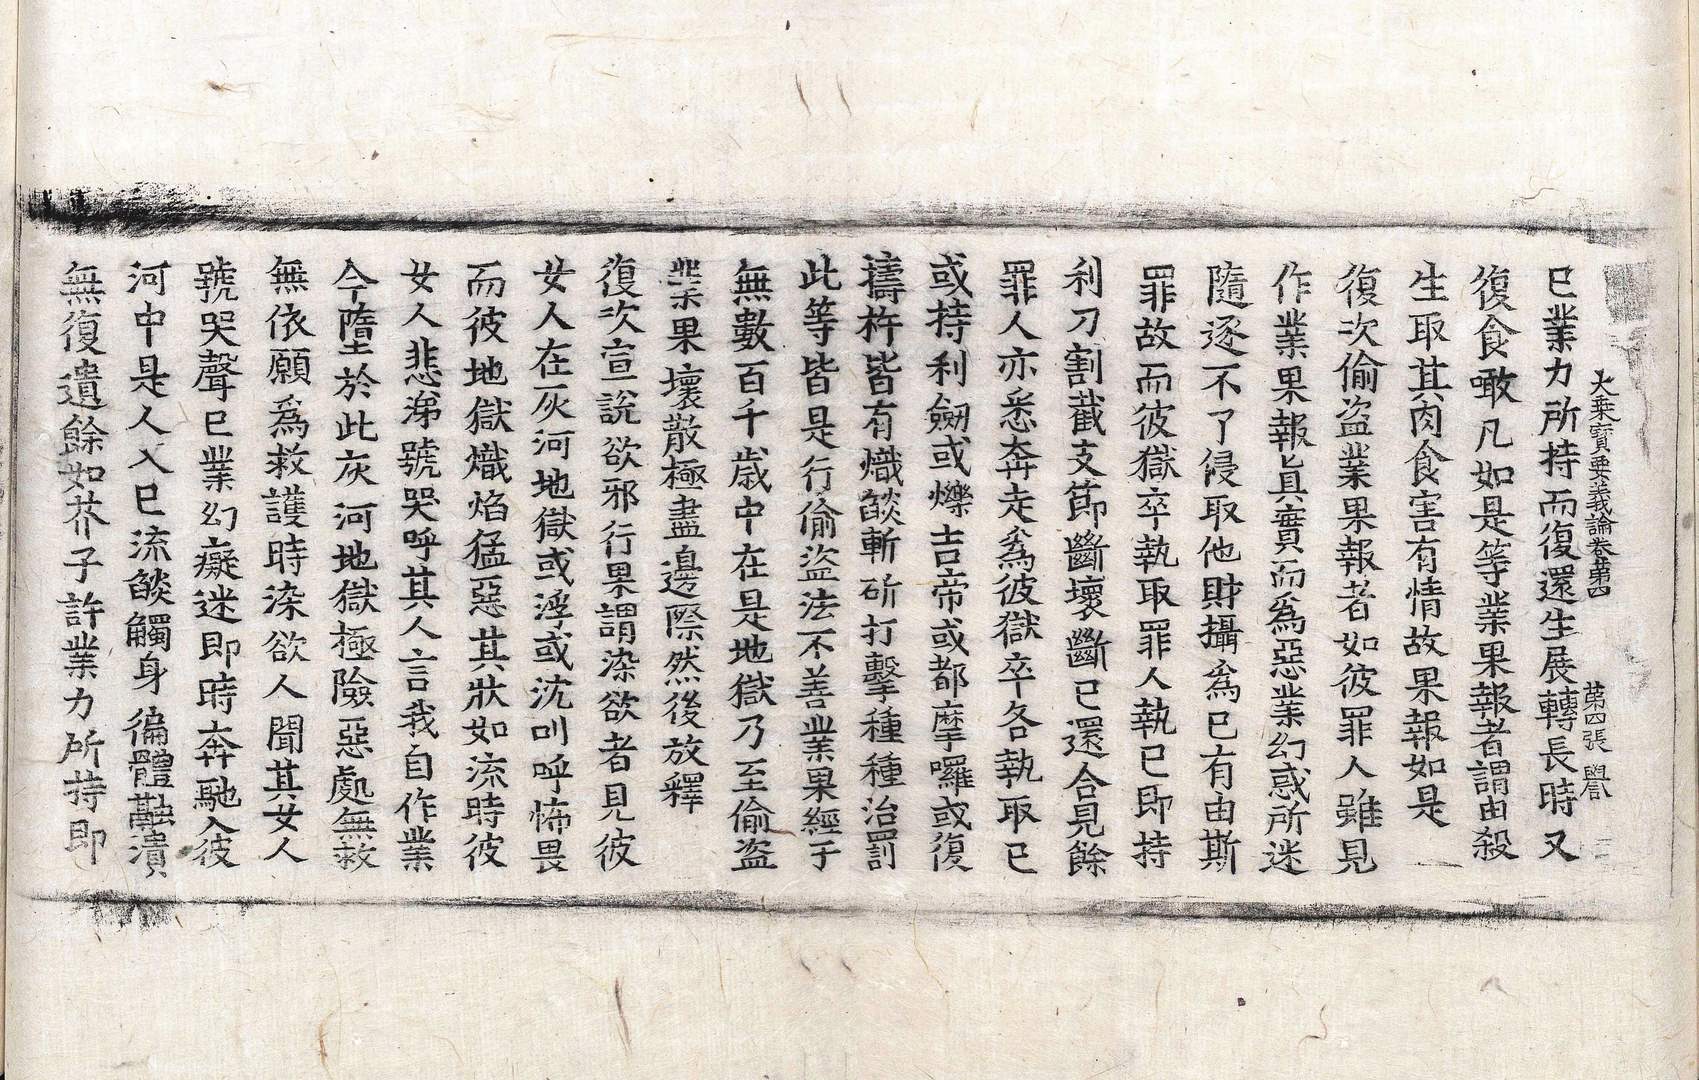 大乗寶要義論卷第四 第四張 譽
已業力所持而復還生展轉長時又
復食噉凡如是等業果報者謂由殺
生取其肉食害有情故果報如是
復次偷盜業果報者如彼罪人雖見
作業果報眞實而爲惡業幻惑所迷
隨逐不了侵取他財攝爲已有由斯
罪故而彼獄卒執取罪人執已即持
利刀割截支節斷壞斷已還合見餘
罪人亦悉奔走爲彼獄卒各執取已
或持利劒或爍吉帝或都摩囉或復
擣杵皆有熾燄斬斫打擊種種治罰
此等皆是行偷盜法不善業果經于
無數百千歲中在是地獄乃至偷盜
業果壞散極盡邊際然後放釋
復次宣說欲邪行果謂染欲者見彼
女人在灰河地獄或浮或沈叫呼怖畏
而彼地獄熾焰猛惡其狀如流時彼
女人悲涕號哭呼其人言我自作業
今墮於此灰河地獄極險惡處無救
無依願爲救護時染欲人聞其女人
號哭聲已業幻癡迷即時奔馳入彼
河中是人入已流燄觸身徧體融潰
無復遺餘如芥子許業力所持即